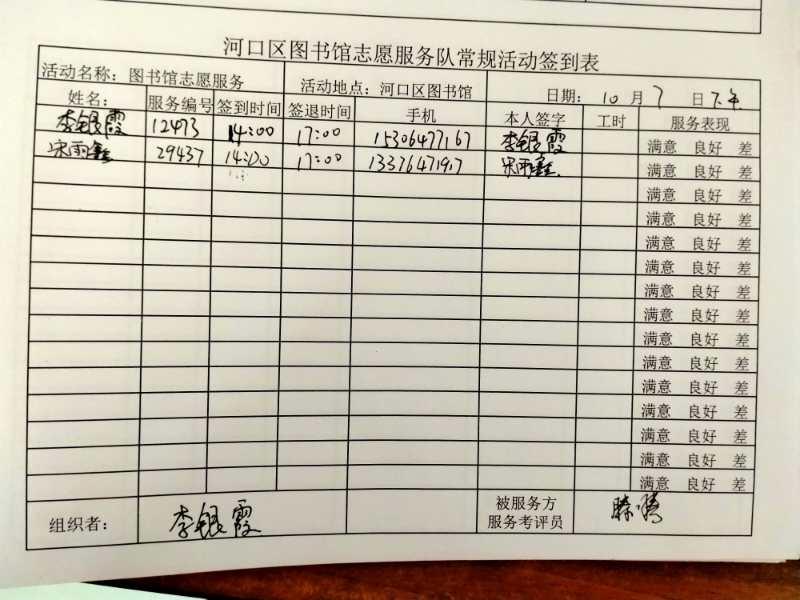 河口区图书馆志愿服务队常规活动签到表
活动名称：图书馆志愿服务 活动地点：河口区图书馆 日期：10月7日下午
姓名： 服务编号 签到时间 签退时间 手机 本人签字 工时 服务表现
李银霞 12473 14:00 17:00 15306477167 李银霞 满意 良好 差
宋雨鑫 29437 14:00 17:00 13376471917 宋雨鑫 满意 良好 差
满意 良好 差
满意 良好 差
满意 良好 差
满意 良好 差
满意 良好 差
满意 良好 差
满意 良好 差
满意 良好 差
满意 良好 差
满意 良好 差
满意 良好 差
满意 良好 差
满意 良好 差
组织者： 李银霞 被服务方
服务考评员